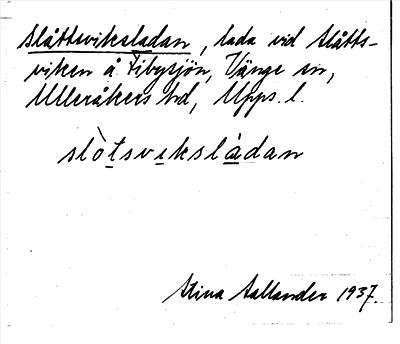 Slåttsviksladan, lada vid Slåtts-
viken å Fibysjön, Vänge sn,
Ulleråkers hd, Upps. l.
slòtsvikslàdan
Stina Sallander 1937.